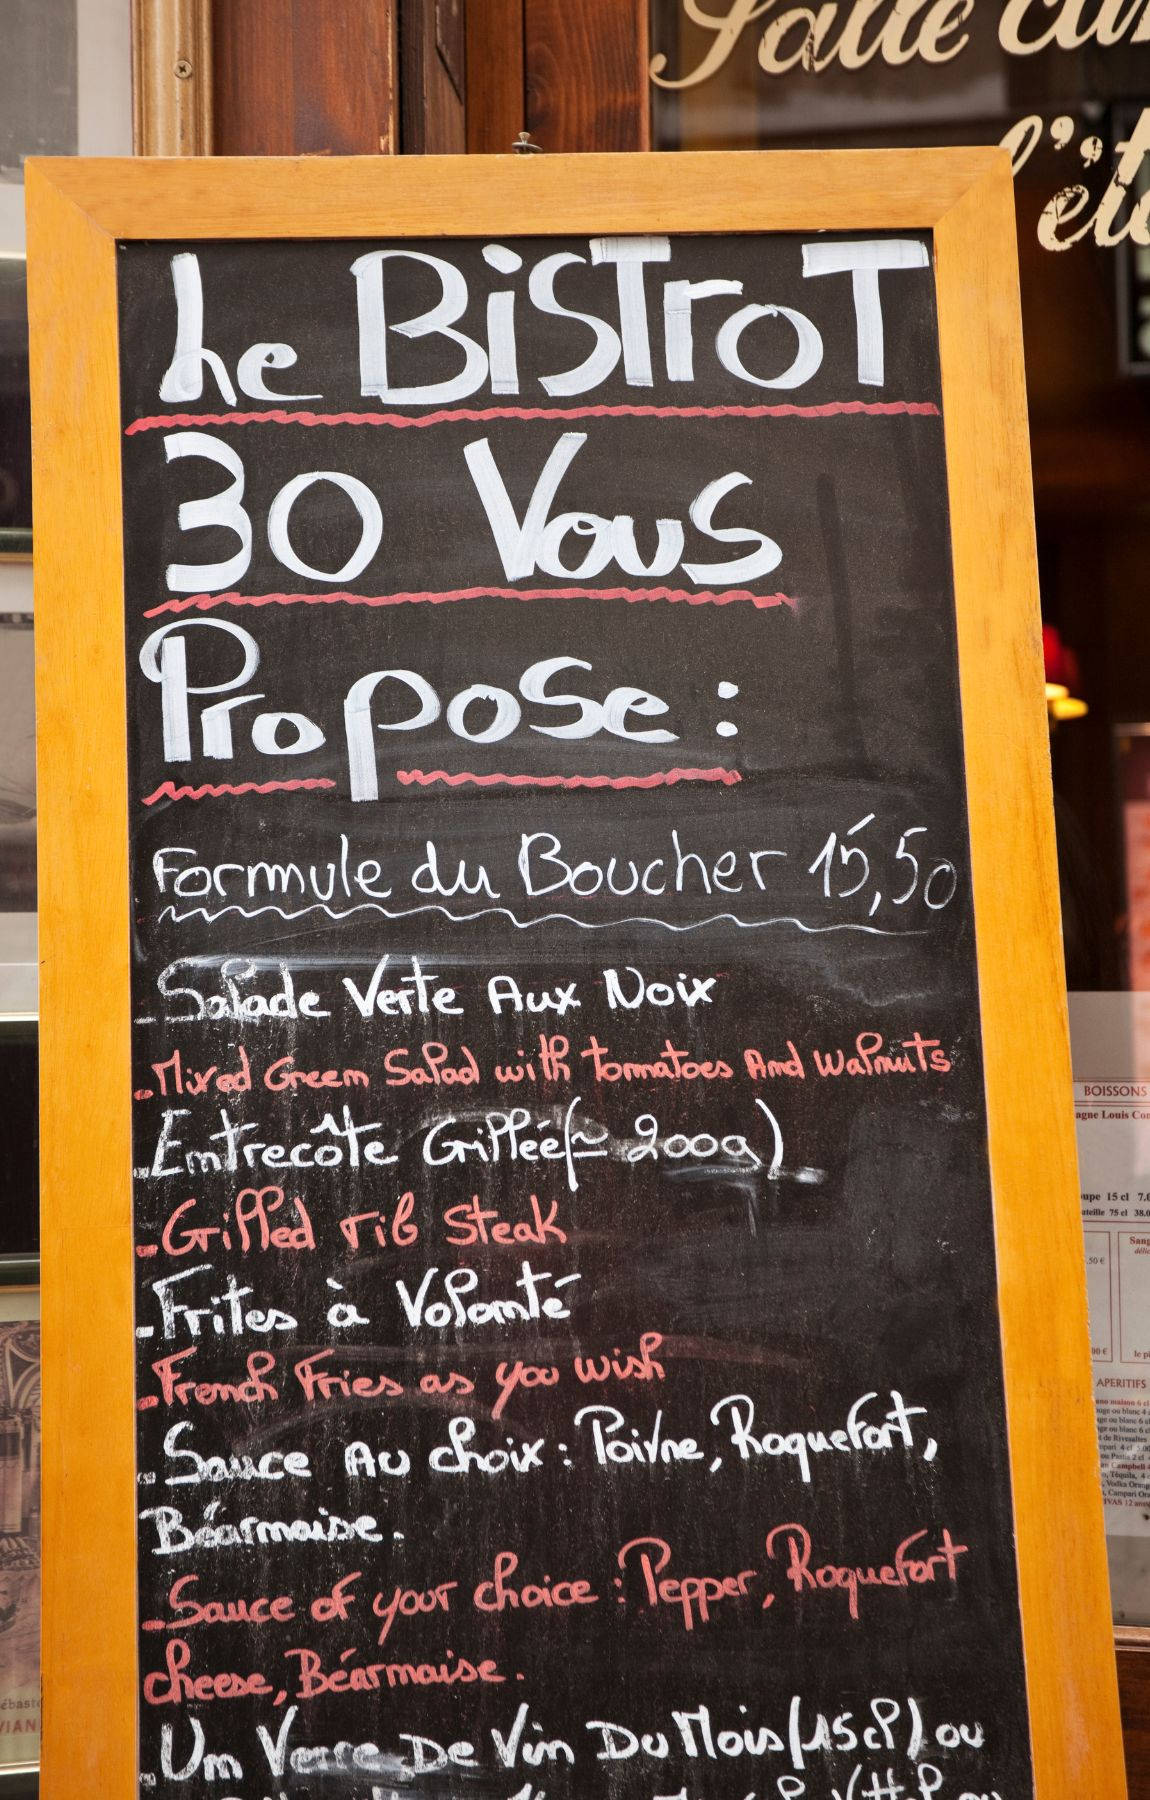 Salle
l'ét
Le BiSTroT
30 Vous
Propose :
Formule du Boucher 15,50
- Salade Verte Aux Noix
- Mixed Green Salad with tomatoes And walnuts
- Entrecôte Grillée (≃ 200g)
- Grilled rib Steak
- Frites à Volonté
- French Fries as you wish
- Sauce Au choix : Poivre, Roquefort,
Béarnaise.
- Sauce of your choice : Pepper, Roquefort
cheese, Béarnaise.
- Un Verre De Vin Du Mois (15cl) ou
BOISSONS
agne Louis Con
upe 15 cl 7.0
uteille 75 cl 38.0
Sang
déli
.50 €
00 €
le pi
APERITIFS